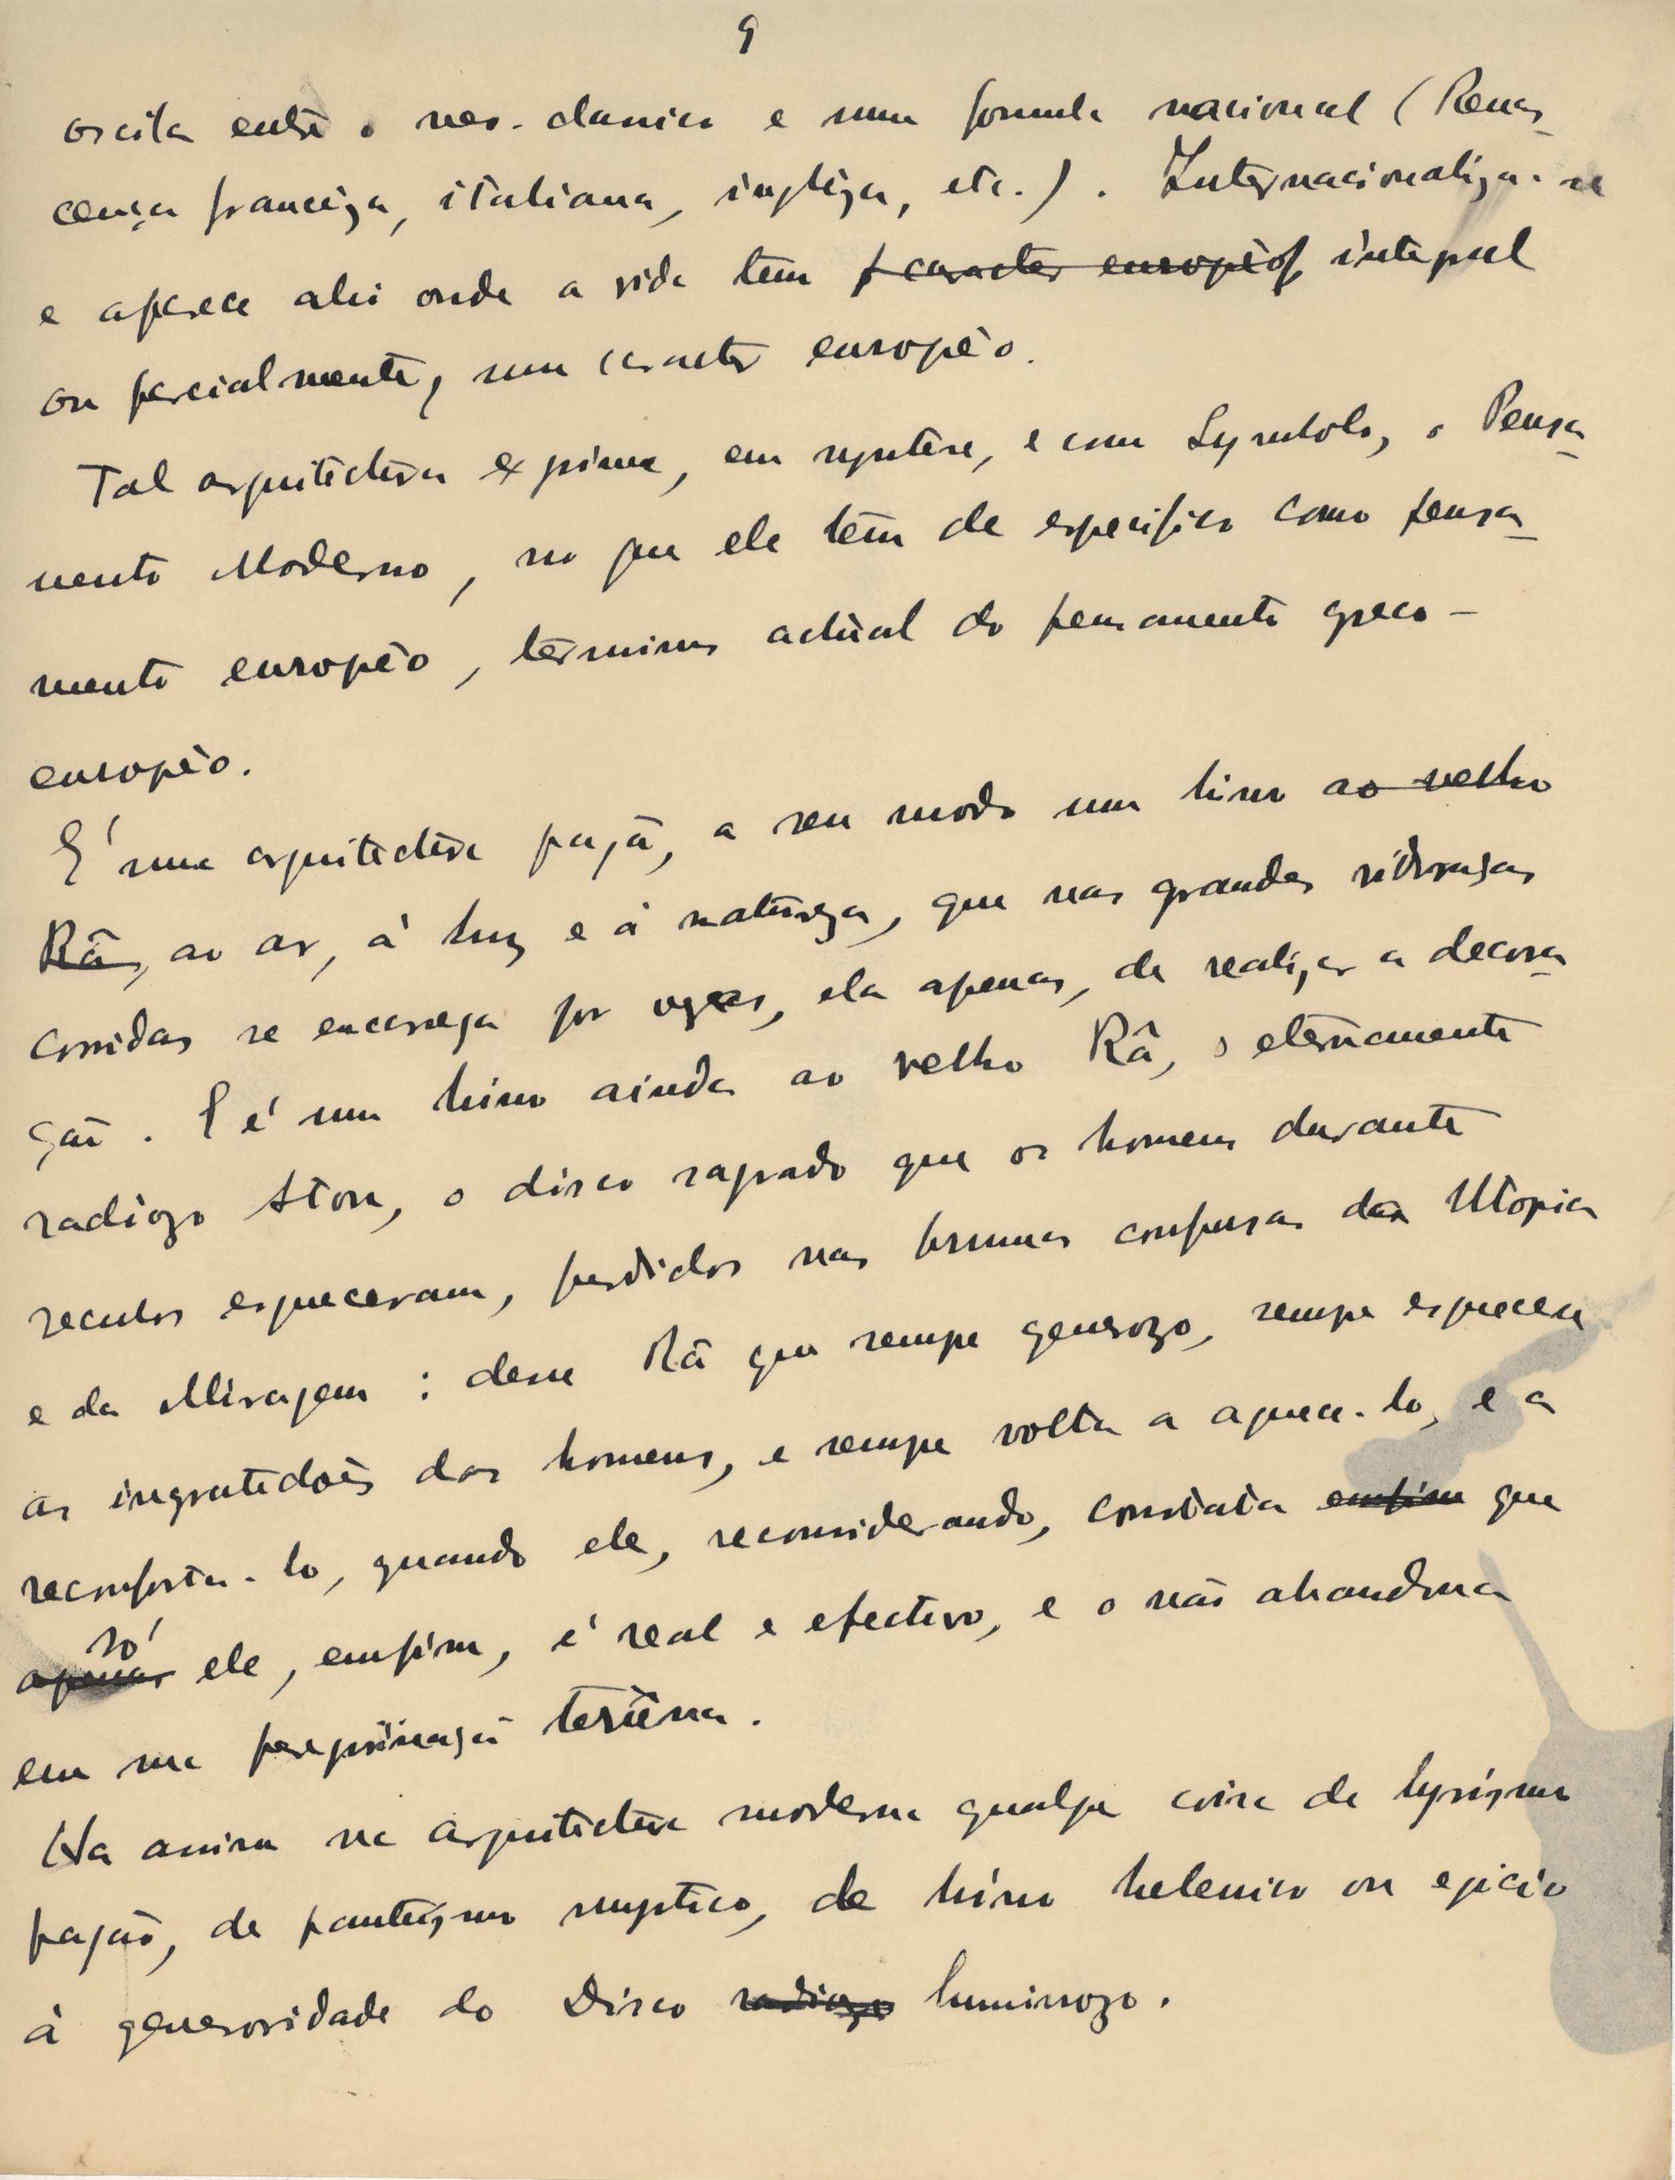 9
oscila entre o neo-classico e uma formula nacional (Renas-
cença franceza, italiana, ingleza, etc.). Internacionaliza-se
e aparece ahi onde a vida tem o caracter européo, integral
ou parcialmente, um caracter européo.
Tal arquitectura exprime, em syntese, e com Symbolo, o Pensa-
mento Moderno, no que ele tem de especifico como pensa-
mento européo, terminus actual do pensamento greco-
européo.
É uma arquitectura pagã, a seu modo um hino ao velho
Râ, ao ar, á luz e á natureza, que nas grandes vidraças
corridas se encarrega por vezes, ela apenas, de realizar a decora-
ção. E é um hino ainda ao velho Râ, o eternamente
radiozo Aton, o disco sagrado que os homens durante
seculos esqueceram, perdidos nas brumas confusas da Utopia
e da Miragem: desse Râ que sempre generozo, sempre esquece
as ingratidões dos homens, e sempre volta a aquece-lo, e a
reconforta-lo, quando ele, reconsiderando, constata emfim que
só
apenas ele, emfim, é real e efectivo, e o não abandona
em sua peregrinação terrêna.
Ha assim na arquitectura moderna qualque coisa de lyrismo
pagão, de panteismo mystico, de hino helenico ou egicio
á generosidade do Disco radiozo luminozo.